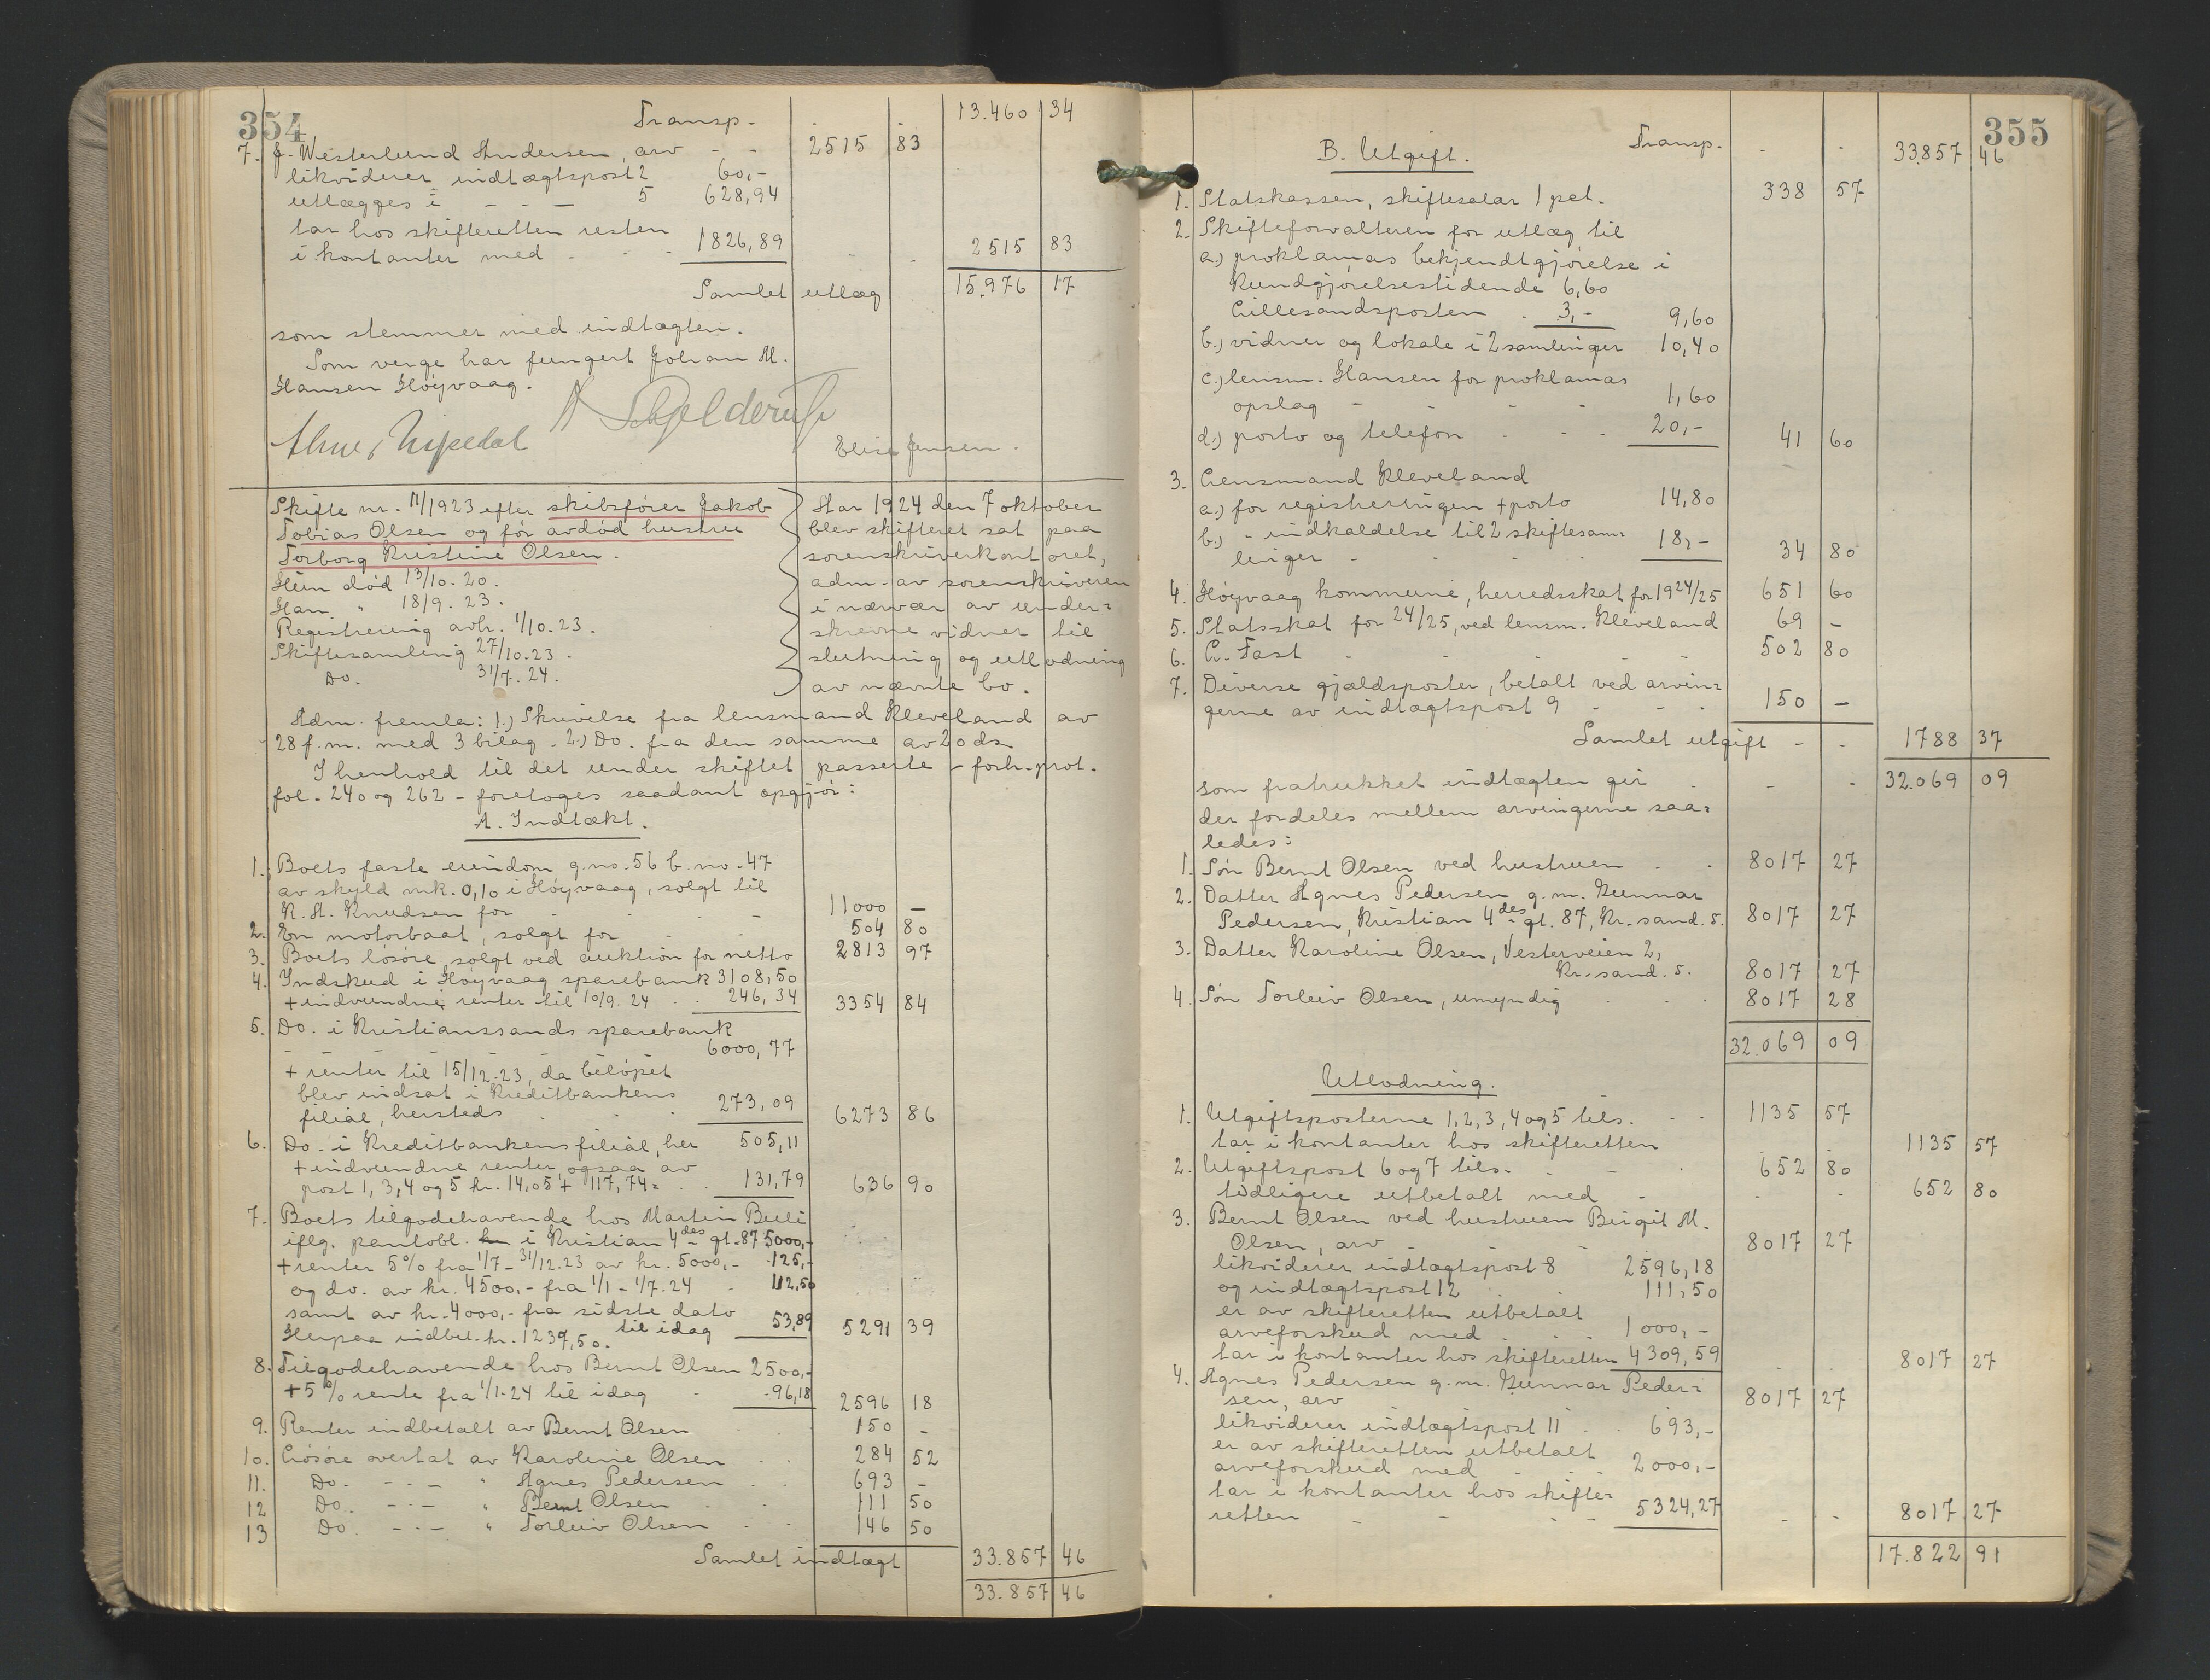 354
Transp. - - 13.460 34
7. J. Westerlund Andersen, arv - - 2515 83
likviderer indtægtspost 2 60,-
utlægges i - - - 5 628,94
tar hos skifteretten resten
i kontanter med - - - 1826,89 - - 2515 83
Samlet utlæg 15.976 17
som stemmer med indtægten.
Som verge har fungert Johan M.
Hansen Høyvaag.
Elise Jensen.
Skifte nr. 11/1923 efter skibsfører Jakob
Tobias Olsen og før avdød hustru
Torborg Kristine Olsen.
Hun død 13/10-20.
Han " 18/9. 23.
Registrering avh. 1/10. 23.
Skiftesamling 27/10-23.
Do. 31/7. 24.
Aar 1924 den 7 oktober
blev skifteret sat paa
sorenskriverkontoret,
adm. av sorenskriveren
i nærvær av under=
skrevne vidner til
slutning og utlodning
av nævnte bo.
Adm. fremla: 1.) Skrivelse fra lensmand Kleveland av
28 f.m. med 3 bilag. 2.) Do. fra den samme av 20 ds.
I henhold til det under skiftet passerte - forh.prot.
fol. 240 og 262 - foretoges saadant opgjør:
A. Indtækt.
1. Boets faste eiendom g.no. 56 b.no. 47
av skyld mk. 0,10 i Høyvaag, solgt til
K. A. Knudsen for - - - - 11000 -
2. En motorbaat, solgt for - - 504 80
3. Boets løsøre solgt ved auktion for netto 2813 97
4. Indskud i Høyvaag sparebank 3108,50
+ indvundne renter til 10/9. 24 - - 246,34 3354 84
5. Do. i Kristianssands sparebank
- - - - - - 6000,77
+ renter til 15/12-23, da beløpet
blev indsat i Kreditbankens
filial, hersteds - - - 273,09 6273 86
6. Do. i Kreditbankens filial, her 505,11
+ indvundne renter, ogsaa av
post 1, 3, 4 og 5 kr. 14,05 + 117,74 = . . 131,79 636 90
7. Boets tilgodehavende hos Martin Buli
iflg. pantobl. i Kristian 4des gt. 87 5000,-
+ renter 5% fra 1/7 - 31/12.23 av kr. 5000,- 125,-
og do. av kr. 4500,- fra 1/1 - 1/7. 24 112,50
samt av kr. 4000,- fra sidste dato
til idag 53,89 5291 39
Herpaa indbet. kr. 1239,50.
8. Tilgodehavende hos Bernt Olsen 2500,-
+ 5% rente fra 1/1-24 til idag - 96,18 2596 18
9. Renter indbetalt av Bernt Olsen - - 150 -
10. Løsøre overtat av Karoline Olsen . . 284 52
11. Do. - - - " Agnes Pedersen . . 693 -
12 Do. - - - " Bernt Olsen . . 111 50
13 Do. - - - " Torleiv Olsen . . 146 50
Samlet indtægt 33.857 46
33.857 46
355
Transp. - - 33.857 46
B. Utgift.
1. Statskassen, skiftesalær 1 pct. 338 57
2. Skifteforvalteren for utlæg til
a.) proklamas bekjendtgjørelse i
Kundgjørelsestidende 6,60
Lillesandsposten . 3,- 9,60
b.) vidner og lokale i 2 samlinger 10,40
c.) lensm. Hansen for proklamas
opslag - - - - 1,60
d.) porto og telefon . . . 20,- 41 60
3. Lensmand Kleveland
a.) for registreringen + porto 14,80
b.) " indkaldelse til 2 skiftesam=
linger - - - - 18,- 34 80
4. Høyvaag kommune, herredsskat for 1924/25 651 60
5. Statsskat for 24/25, ved lensm. Kleveland 69 -
6. L. Fast - - - - - 502 80
7. Diverse gjældsposter, betalt ved arvin=
gerne av indtægtspost 9 - - . 150 -
Samlet utgift - - 1788 37
som fratrukket indtægten gir . - - 32.069 09
der fordeles mellem arvingerne saa=
ledes:
1. Søn Bernt Olsen ved hustruen . . 8017 27
2. Datter Agnes Pedersen g.m. Gunnar
Pedersen, Kristian 4des gt. 87, Kr.sand. S. 8017 27
3. Datter Karoline Olsen, Vesterveien 2,
Kr.sand. S. 8017 27
4. Søn Torleiv Olsen, umyndig . . 8017 28
32.069 09
Utlodning.
1. Utgiftsposterne 1, 2, 3, 4 og 5 tils. - - 1135 57
tar i kontanter hos skifteretten 1135 57
2. Utgiftspost 6 og 7 tils. - - . 652 80
tidligere utbetalt med - - - 652 80
3. Bernt Olsen ved hustruen Birgit M.
Olsen, arv - - 8017 27
likviderer indtægtspost 8 2596,18
og indtægtspost 12 . 111,50
er av skifteretten utbetalt
arveforskud med . . . 1000,-
tar i kontanter hos skifteretten 4309,59 . . 8017 27
4. Agnes Pedersen g.m. Gunnar Peder=
sen, arv 8017 27
likviderer indtægtspost 11 . . 693,-
er av skifteretten utbetalt
arveforskud med . . . 2000,-
tar i kontanter hos skifte=
retten - - - - 5324,27 - - 8017 27
17.822 91